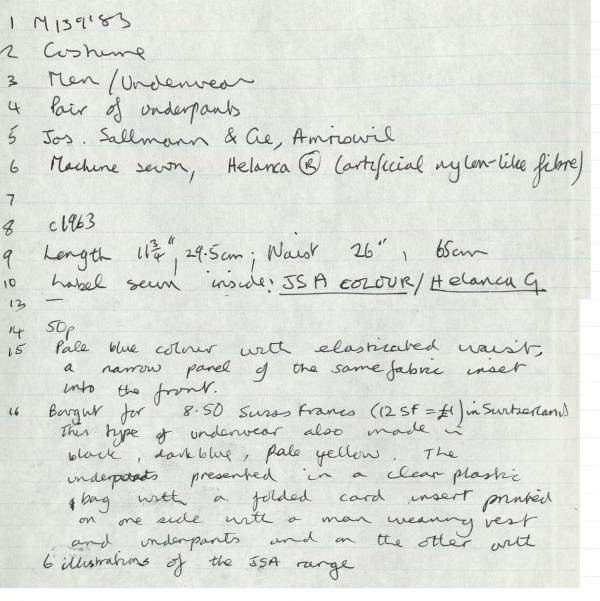 1 M139'83
2 Costume
3 Men / Underwear
4 Pair of underpants
5 Jos. Sallmann & Cie, Amriswil
6 Machine sewn, Helanca ® (artificial nylon-like fibre)
7
8 c1963
9 Length 11¾", 29.5cm; Waist 26", 65cm
10 Label sewn inside: JSA COLOUR/Helanca G
13 —
14 50p
15 Pale blue colour with elasticated waist,
a narrow panel of the same fabric inset
into the front.
16 Bought for 8.50 Swiss Francs (12 SF = £1) in Switzerland
This type of underwear also made in
black, dark blue, pale yellow. The
underpants presented in a clear plastic
bag with a folded card insert printed
on one side with a man wearing vest
and underpants and on the other with
6 illustrations of the JSA range